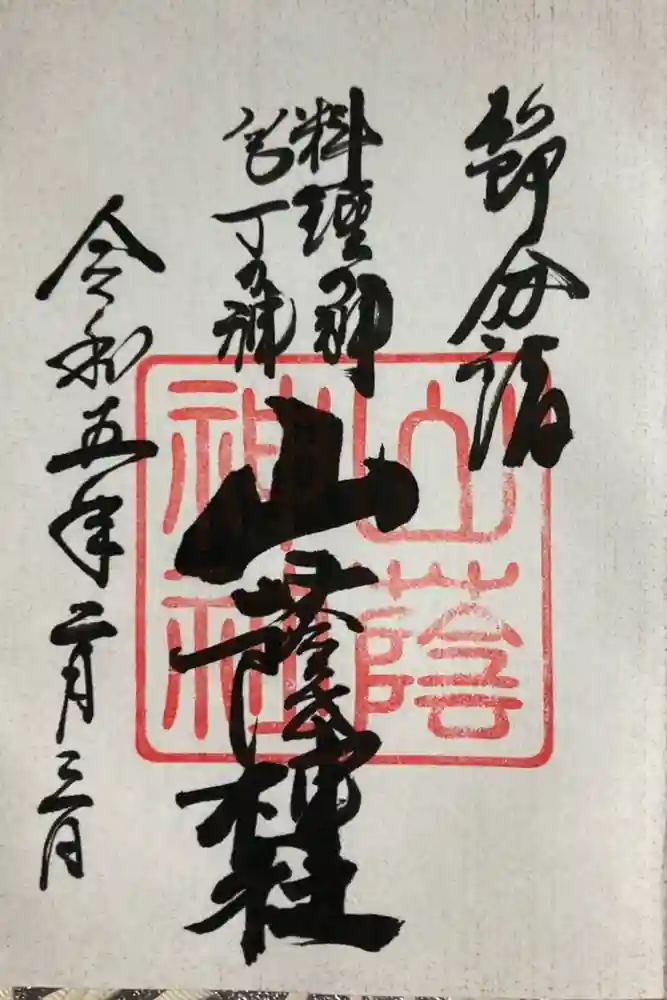 節分詣
料理の神
庖丁の神
山蔭神社
令和五年二月三日
山蔭
神社